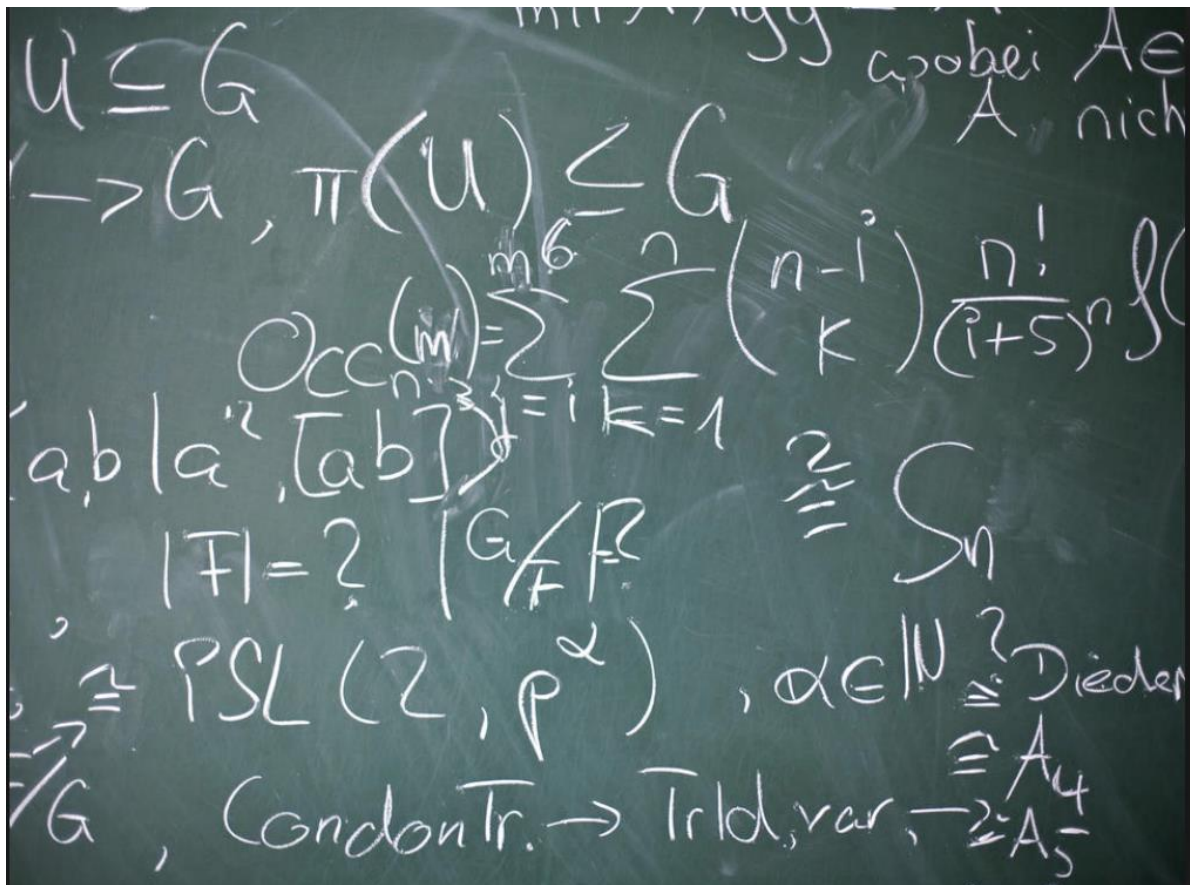 wobei A ∈
U ≤ G
A nich
-> G, π(U) ≤ G
Occ_n(m) = Σ_{j=i}^{m6} Σ_{k=1}^{n} (n-i over k) n!/(i+5)^n f(
a,b|a², [ab]
≅? S_n
|F| = ? |G/F| = ?
≅ PSL(2, p^α), α∈ℕ ≅? Dieder
≅ A_4
/G, CondonTr. → TrId,var, → ≅ A_5